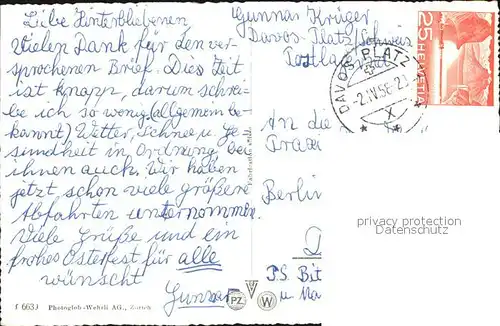 Liebe Hinterbliebenen,
Vielen Dank für den ver-
sprochenen Brief. Dies Zeit
ist knapp, darum schrei-
be ich so wenig (allgemein be-
kannt) Wetter, Schnee u. Ge-
sundheit in Ordnung, bei
ihnen auch. Wir haben
jetzt schon viele größere
Abfahrten unternommen.
Viele Grüße und ein
frohes Osterfest für alle
wünscht
Gunnar
f 6639 Photoglob-Wehrli AG., Zürich
Gunnar Krüger
Davos-Platz/Schweiz
DAVOS PLATZ
-2.IV.58-2
X
25 HELVETIA
An die
Praxe
Berlin
P.S. Bit
u Ma
PZ W
privacy protection
Datenschutz